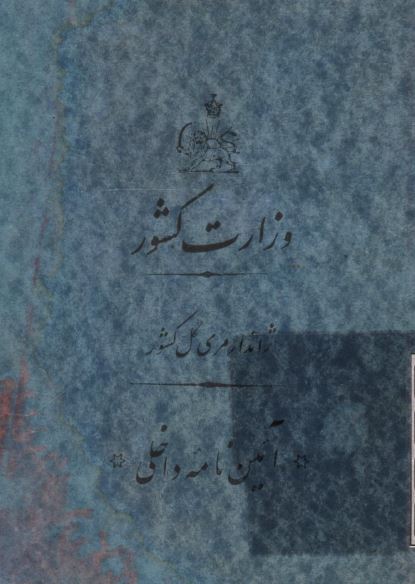 وزارت کشور
ژاندارمری کل کشور
آئین نامه داخلی